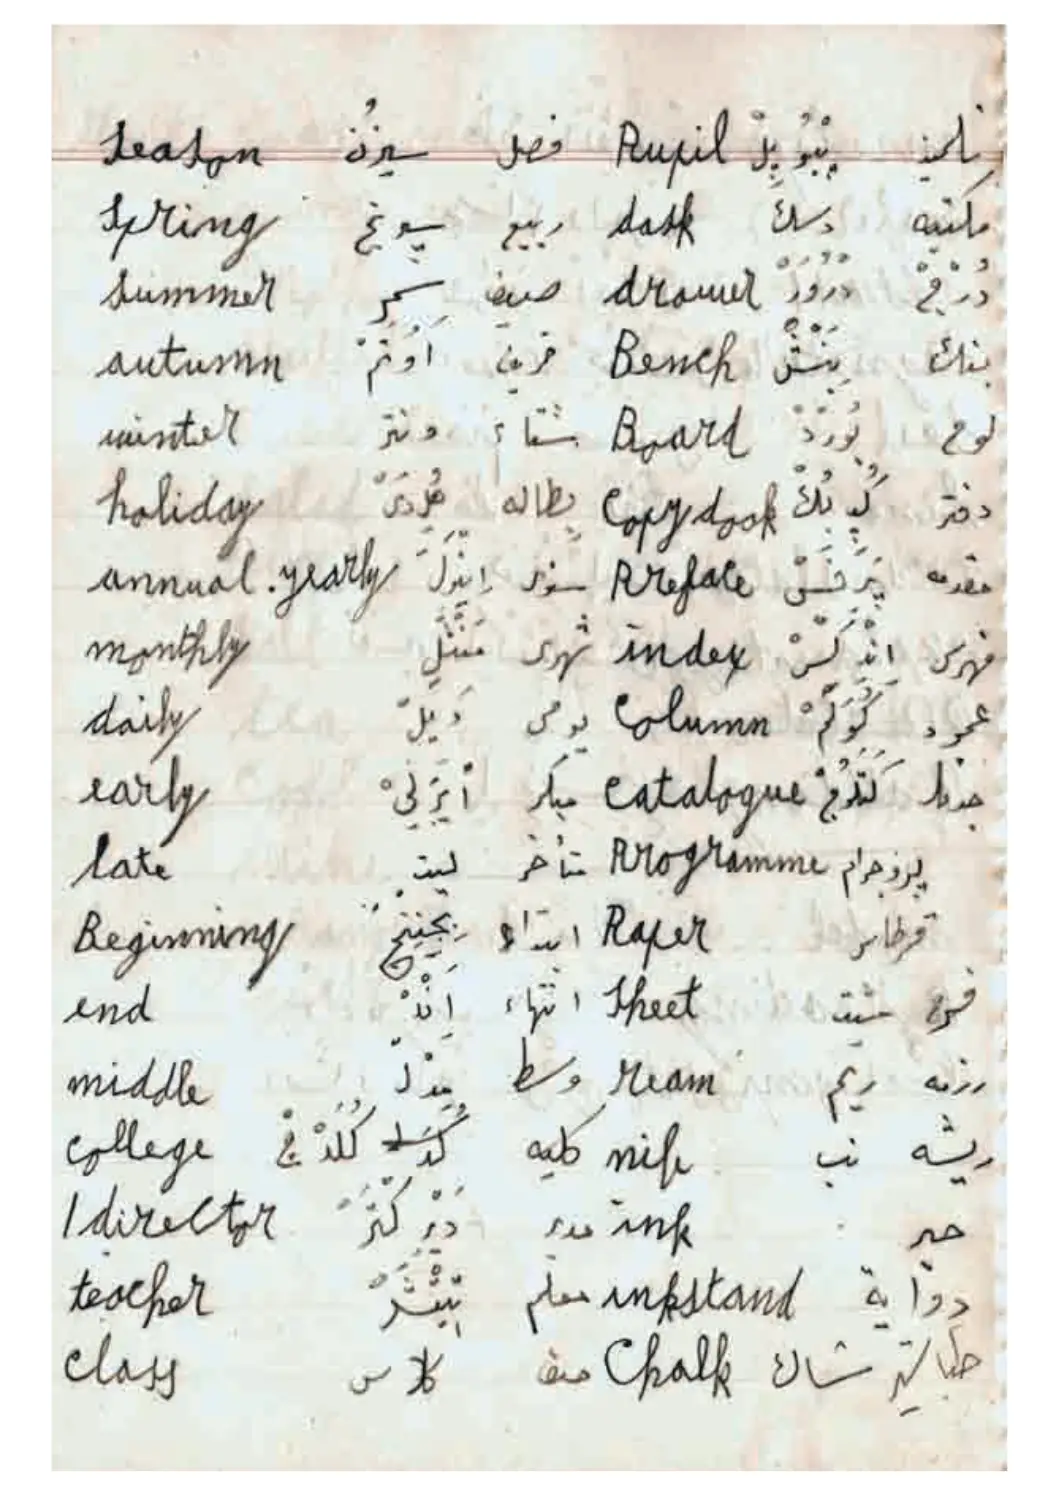 season سيزن فصل Pupil بيوبل تلميذ
spring سبرنج ربيع dask دسك مكتبه
summer سمر صيف drawer درور درج
autumn اوتم خريف Bench بنش بنك
winter ونتر شتاء Board بورد لوح
holiday هلدى بطاله Copy dook كبى بك دفتر
annual . yearly اينول سنوى Preface برفس مقدمه
monthly منثلى شهرى index اندكس فهرس
daily ديلى يومى Column كولم عمود
early ايرلى مبكر Catalogue كتلوج
late ليت متأخر Programme بروجرام
Beginning بجننج ابتداء Paper قرطاس
end اند انتهاء sheet شيت فرخ
middle مدل وسط ream ريم رزمه
College كلدج كليه nib نب ريشه
director ديركتر مدير ink حبر
teacher تيتشر معلم inkstand دواية
class كلاس صف Chalk شاك